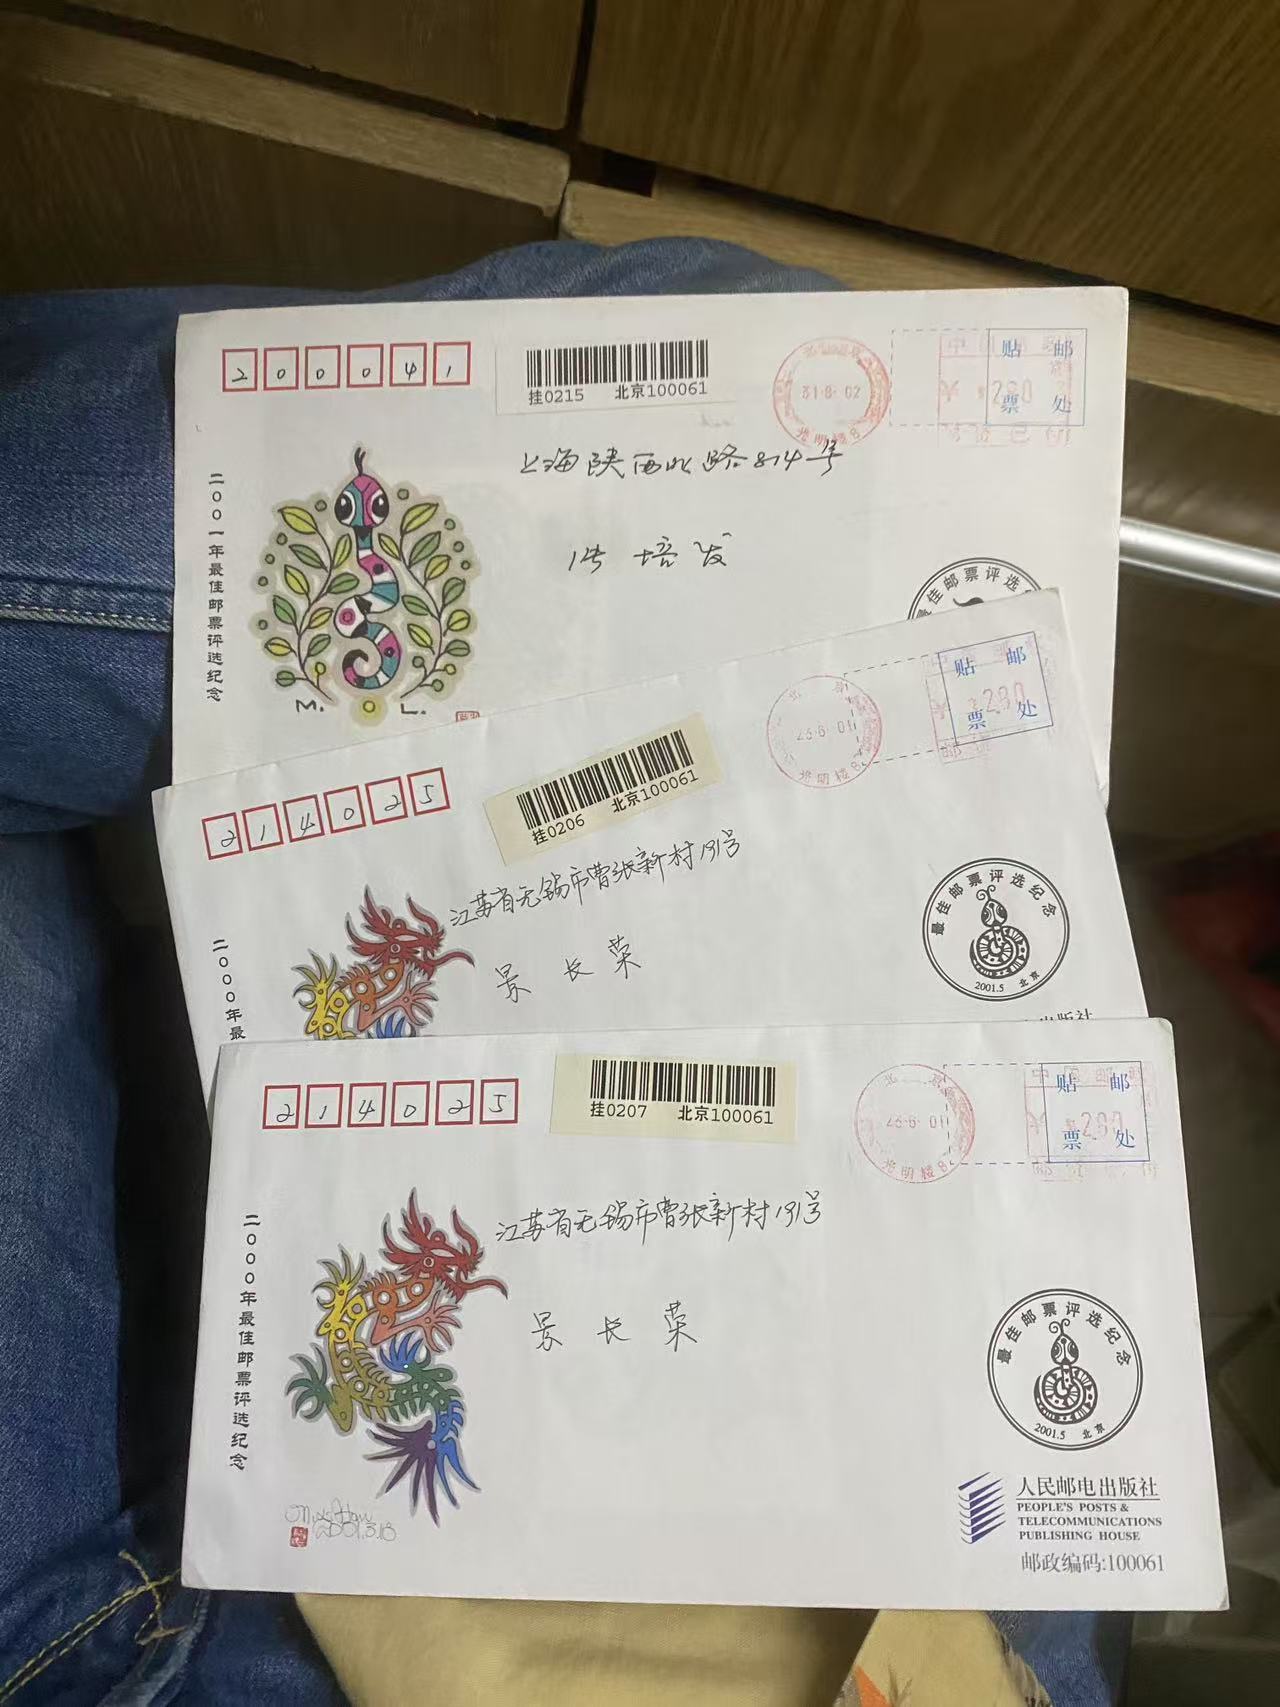 200041
挂0215 北京100061
31·8·02
光明楼8
贴 邮
票 处
280
上海陕西北路814号
培发
二〇〇一年最佳邮票评选纪念
M. O L.
最佳邮票评选纪
214025
挂0206 北京100061
北京
23·6·01
光明楼8
贴 邮
票 处
280
江苏省无锡市曹张新村191号
景长荣
二〇〇〇年最
最佳邮票评选纪念
2001.5 北京
214025
挂0207 北京100061
北京
23·6·01
光明楼8
中国邮政
贴 邮
票 处
280
江苏省无锡市曹张新村191号
景长荣
二〇〇〇年最佳邮票评选纪念
2001.3.18
最佳邮票评选纪念
2001.5 北京
人民邮电出版社
PEOPLE'S POSTS &
TELECOMMUNICATIONS
PUBLISHING HOUSE
邮政编码:100061